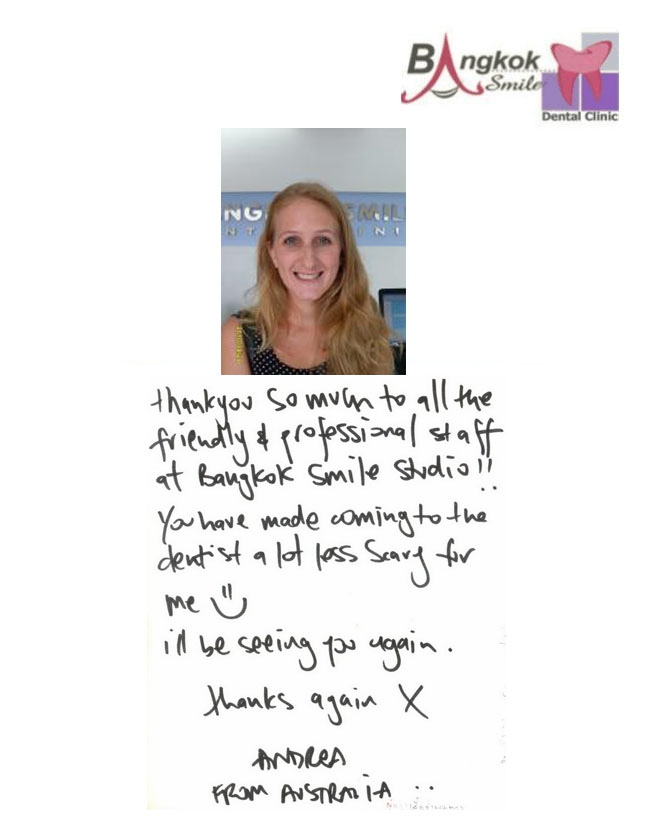 BAngkok
Smile
Dental Clinic
thankyou so much to all the
friendly & professional staff
at Bangkok Smile Studio!!
You have made coming to the
dentist a lot less Scary for
me
i'll be seeing you again.
thanks again X
ANDREA
FROM AUSTRALIA